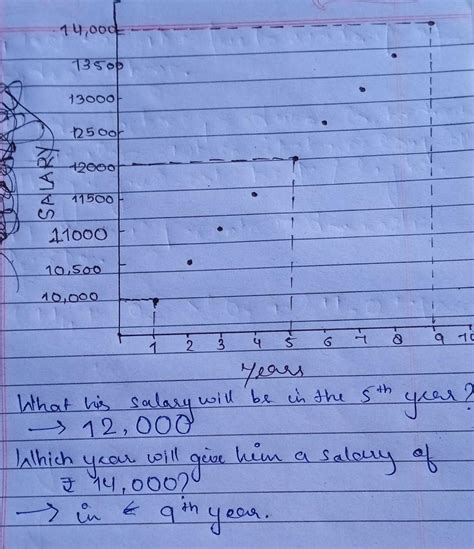 14,000
13500
13000
12500
12000
11500
11000
10,500
10,000
SALARY
1 2 3 4 5 6 7 8 9 10
Years
What his salary will be in the 5th year?
→ 12,000
Which year will give him a salary of
₹ 14,000?
→ in 9th year.